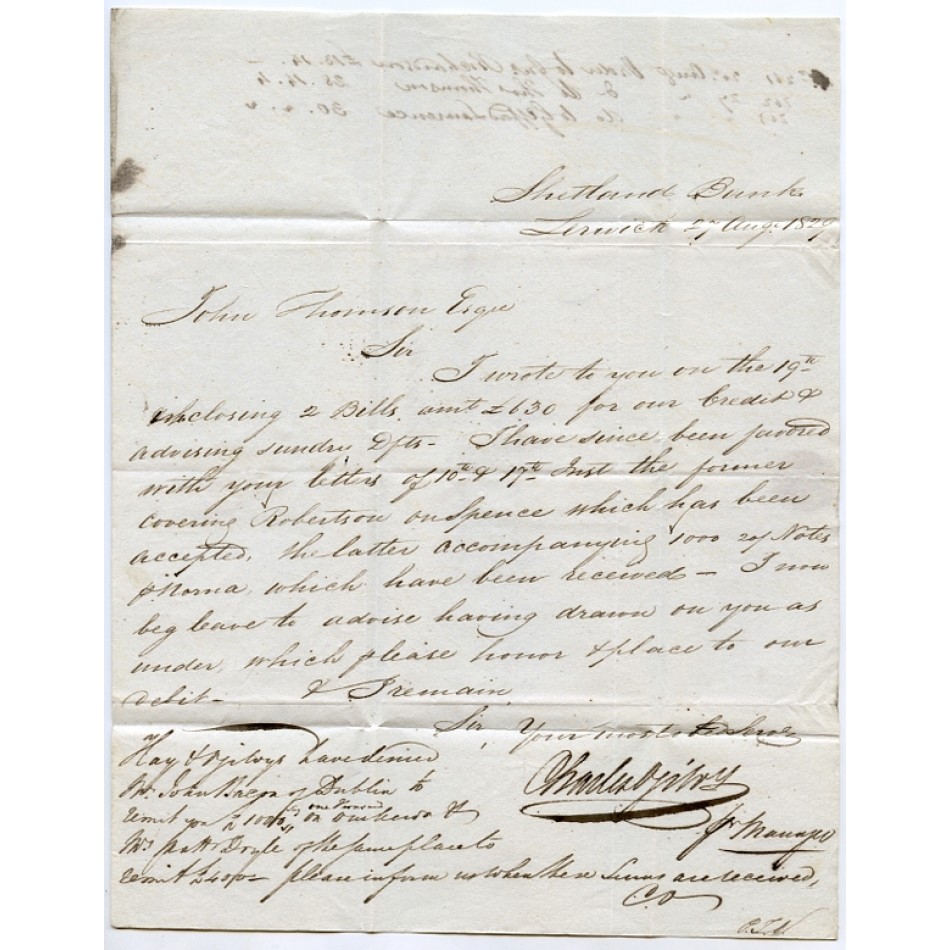 Shetland Bank
Lerwick 27 Aug. 1829
John Thomson Esqre
Sir
I wrote to you on the 19th
inclosing 2 Bills amt £630 for our Credit &
advising sundry Dfts - I have since been favored
with your letters of 10th & 17th Inst the former
covering Robertson on Spence which has been
accepted, the latter accompanying 1000 20/ Notes
p Norna, which have been received - I now
beg leave to advise having drawn on you as
under, which please honor & place to our
debit - & I remain
Sir, Your most
Hay & Ogilvys have desired
Charles Ogilvy
Mr. John Bacon of Dublin to
remit you £1000 one thousand on &
pr Manager
Mr Doyle of the same place to
remit £400 - please inform us when these Sums are received,
C.O